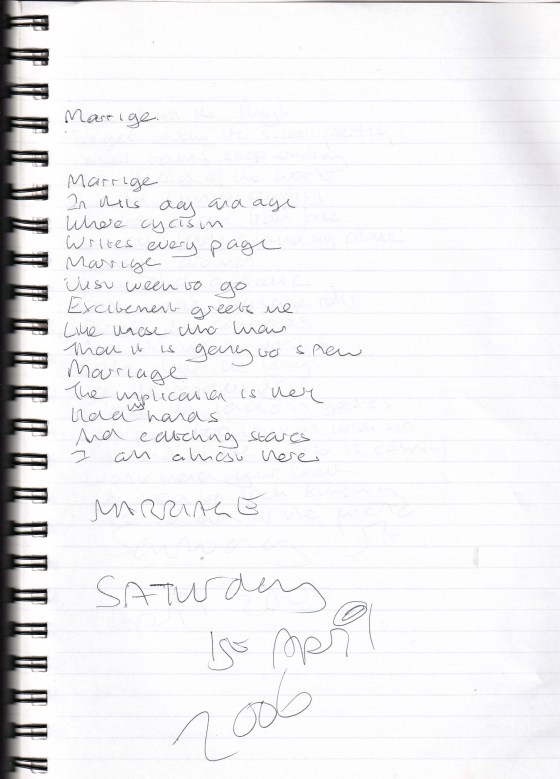 Marrige.
Marrige
In this day and age
Where cycism
Writes every page
Marrige
Just week to go
Excitement greets me
Like those who know
That it is going to snow
Marriage
The implication is
Hold in hands
And catching stares
I am almost there
MARRIAGE
SATURday
1st APRil
2006